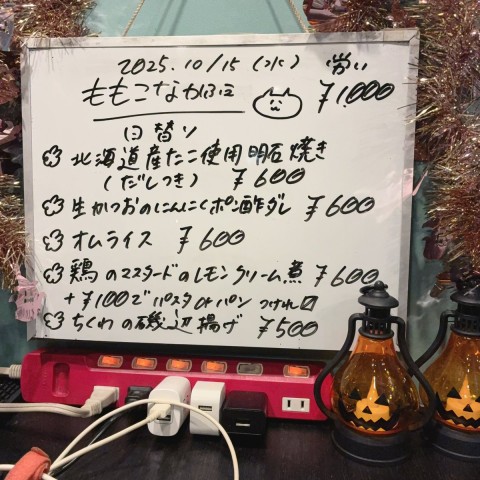 2025.10/15(水) 労い
ももこなか ¥1,000
日替り
北海道産たこ使用明石焼き
(だしつき) ¥600
生かつおのにんにくポン酢ダレ ¥600
オムライス ¥600
鶏のマスタードのレモンクリーム煮 ¥600
+¥100でパスタorパン つけれ
ちくわの磯辺揚げ ¥500